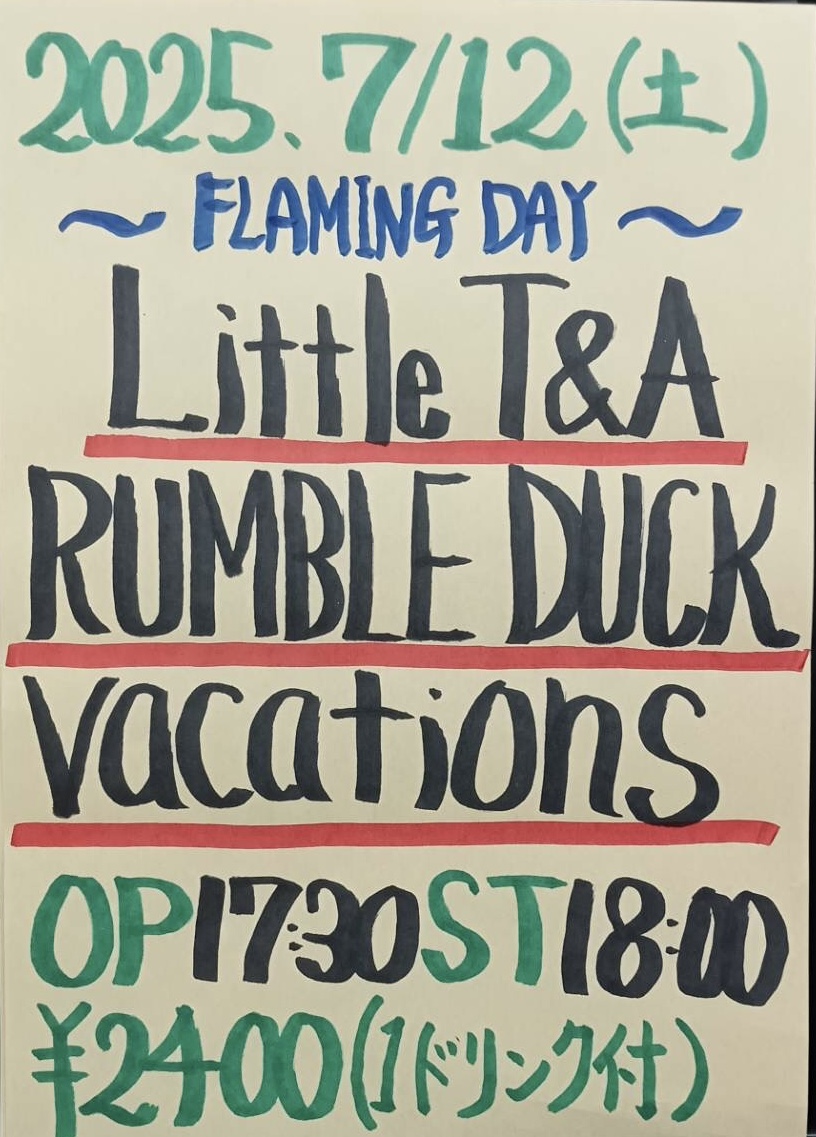 2025.7/12(土)
～FLAMING DAY～
Little T&A
RUMBLE DUCK
vacations
OP17:30ST18:00
¥2400(1ドリンク付)